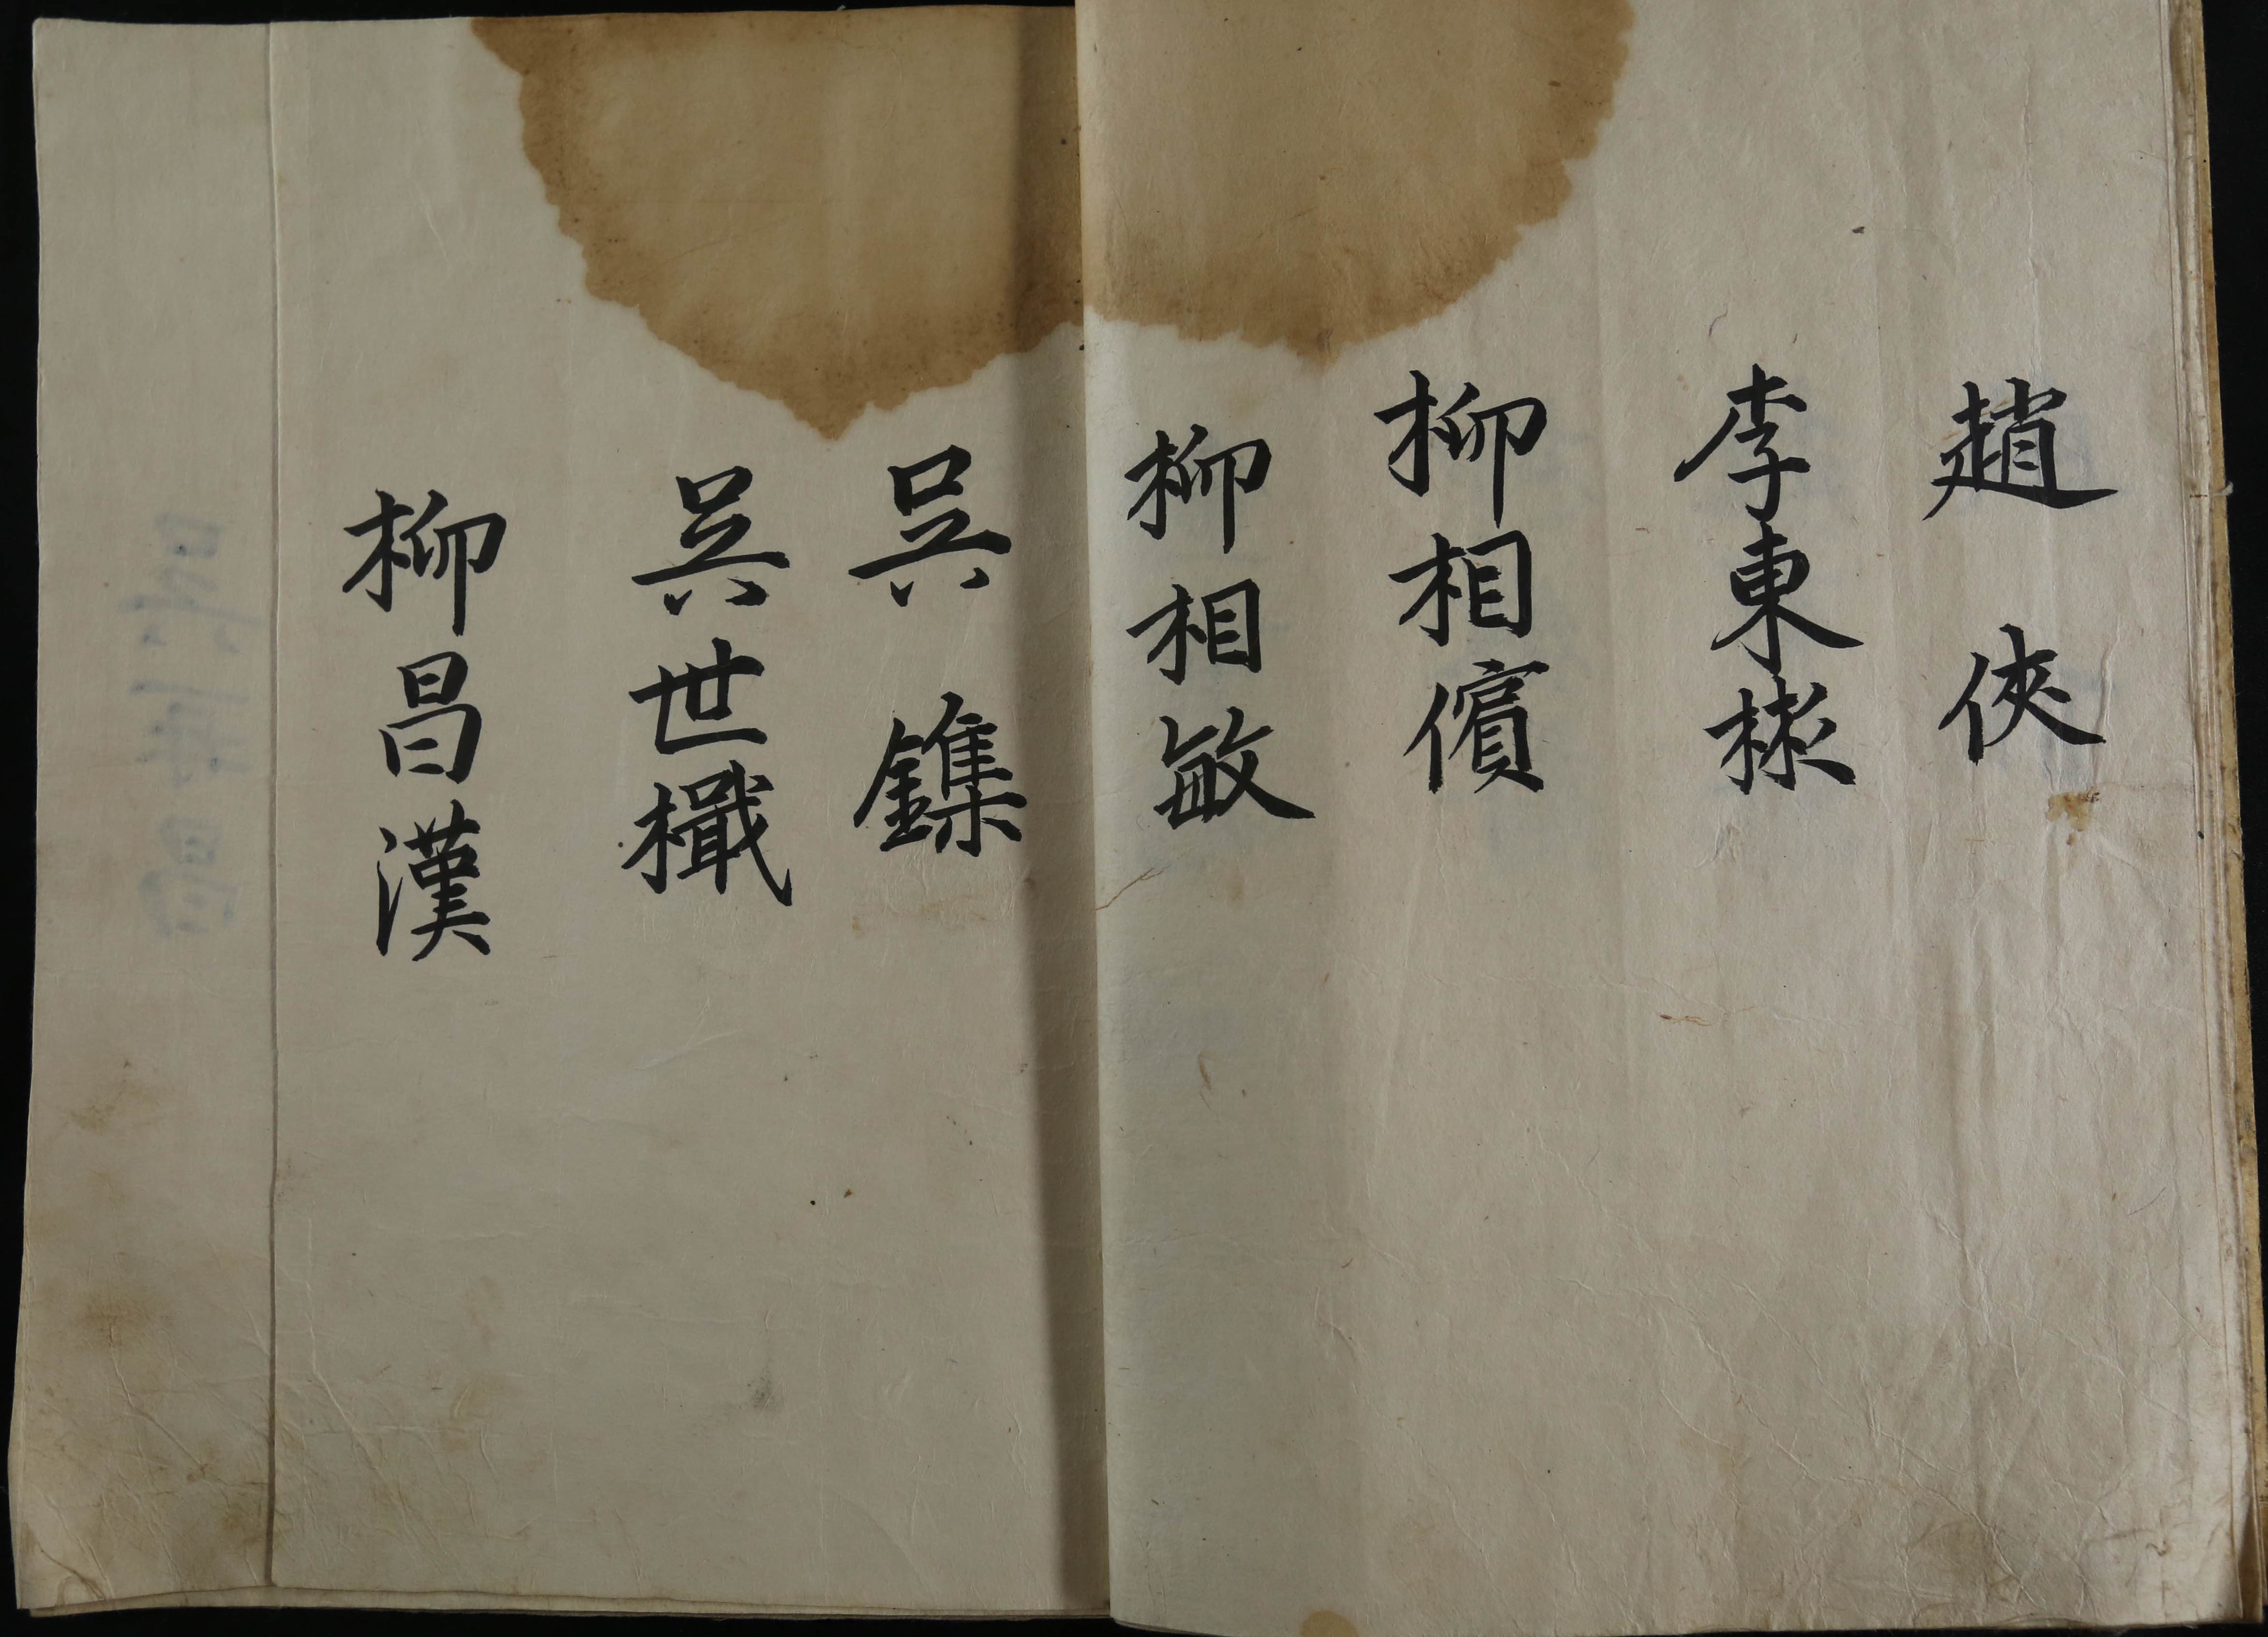 趙俠
李東樑
柳相儐
柳相敏
吳鏶
吳世樴
柳昌漢